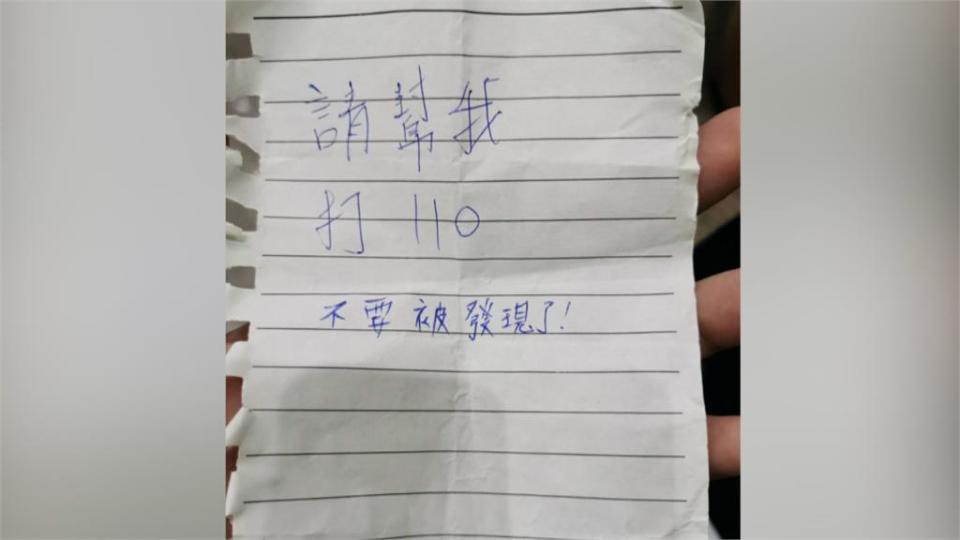 請幫我
打 110
不要被發現了!